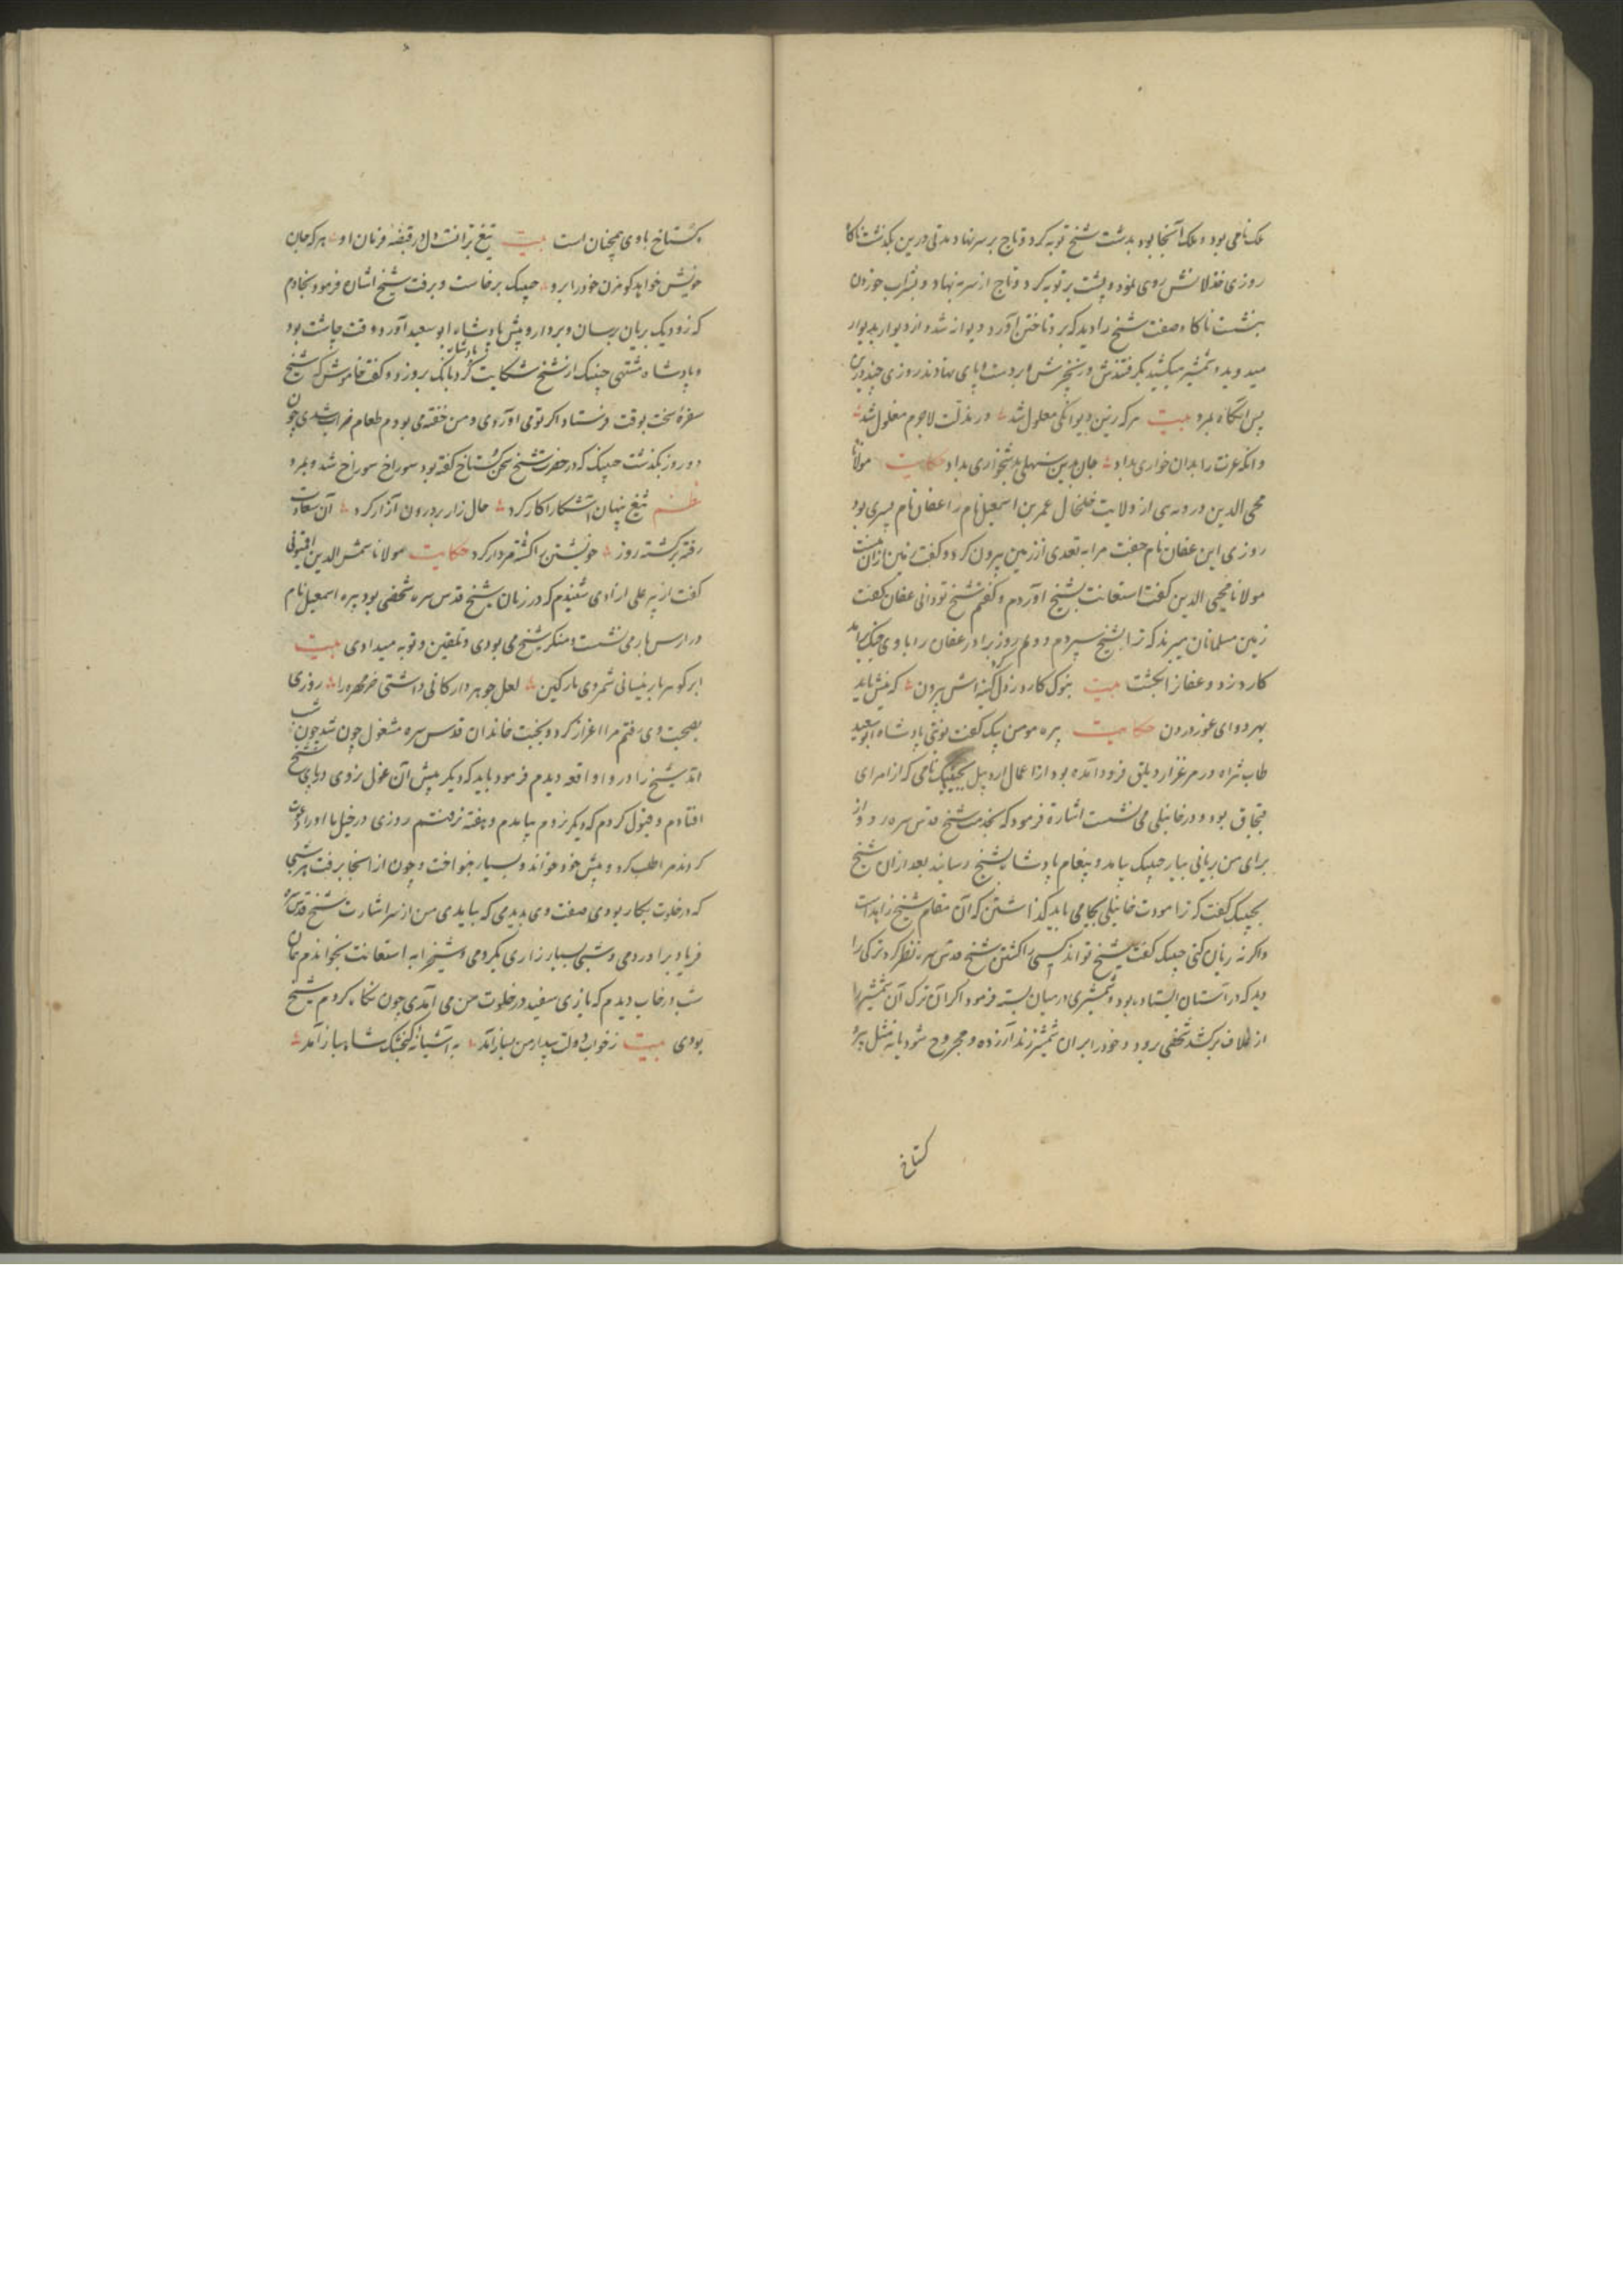 ملک نامی بود و ملک آنجا بود بدست شیخ توبه کرد و تاج بر سر نهاد مدتی درین بگذشت ناکا
روزی خذلانش روی نمود و پشت بر توبه کرد و تاج از سر بنهاد و بشراب خوردن
بنشست ناکاه صفت شیخ را دید که بر وتاختن آورد دیوانه شد و از دیوار بدیوار
میدوید و شمشیر میکشید بکرفتندش و زنجیرش بر دست و پای نهادند روزی چند درین
پس انکاه بمرد بیت هر که زین دیوانکی معلول شد در مذلت لاجرم مغلول شد
وانکه عزت را بدان خواری بداد جان بدین سهلی بدشخواری بداد حکایت مولانا
محیی الدین در دیهی از ولایت خلخال عمر بن اسمعیل نام را عفان نام پسری بود
روزی این عفان نام جفت مرا به تعدی از زمین بیرون کرد و کفت زمین ازان منست
مولانا محیی الدین کفت استعانت بشیخ آوردم و کفتم شیخ تو دانی عفان کفت
زمین مسلمانان میبرند که ترا بشیخ سپردم دوم روز برادر عفان را با وی جنک برآمد
کارد زد و عفان را بکشت بیت بنوک کارد از دل کینه اش بیرون کرد که نیش باید
بهر دوای غور درون حکایت پیره مومن بیک کفت نوبتی پادشاه ابوسعید
طاب ثراه در مرغزار دیلق فرود آمده بود از اعمال اردبیل جیبیک نامی که از امرای
قبچاق بود و در خانبلی می نشست اشارة فرمود که بخدمت شیخ قدس سره رو و از
برای من بریانی بیار جیبیک بیامد و پیغام پادشاه بشیخ رسانید بعد ازان شیخ
بجیبیک کفت که ترا مودت خانبلی بجا می باید کذاشتن که آن مقام شیخ زاهد است
واکر نه زیان کنی جیبیک کفت شیخ تواند کسی را کشتن شیخ قدس سره نظر کرد ترکی را
دید که در آستان ایستاده بود و شمشیری در میان بسته فرمود اکر آن ترک آن شمشیر را
از غلاف برکشد شخصی برود و خود را بران شمشیر زند آزرده و مجروح شود یا نه مثل پیر
کستاخ
کستاخ با وی همچنان است بیت تیغ برانست دل در قبضه فرمان او هر که جان
خویش خواهد کو مزن خود را برو جیبیک برخاست و برفت شیخ اشارة فرمود بخادم
که زود یک بریان برسان و بردار و پیش پادشاه ابوسعید آورد وقت چاشت بود
و پادشاه مشتهی جیبیک از شیخ شکایت کرد پادشاه بانک بروزد و کفت خاموش که شیخ
سفره سخت بوقت فرستاد اکر تو می آوردی و من خفته می بودم طعام خراب شدی چون
دو روز بکذشت جیبیک که در حضرت شیخ سخن کستاخ کفته بود سوراخ سوراخ شد و بمرد
نظم تیغ پنهان آشکارا کار کرد حال زار بر درون آزار کرد آن سعادت
رفته برکشته روز خویشتن را کشته مردار کرد حکایت مولانا شمس الدین اقیونی
کفت از پیر علی ارنادی شنیدم که در زمان شیخ قدس سره شخصی بود پیره اسمعیل نام
در ارس بار می نشست و منکر شیخ می بودی و تلقین و توبه میدادی بیت
ابر کوهربار نیسانی شمردی پارکین لعل جوهردار کانی داشتی خرمهره را روزی
بصحبت وی رفتم مرا اعزاز کرد و بغیبت خاندان قدس سره مشغول چون شد چون شب
آمد شیخ را در واقعه دیدم فرمود باید که دیکر پیش آن غول نروی در پای شیخ
افتادم و قبول کردم که دیکر نروم بیامدم و هفته نرفتم روزی در خیل ما او را دعوت
کردند مرا طلب کرد و پیش خود خواند و بسیار بنواخت و چون از انجا برفت هر شبی
که در خلوت بکار بودی صفت وی بدیدمی که بیایدی من از سر اشارت شیخ قدس سره
فریاد براوردمی و شبی بسیار زاری بکردمی و شیخ را به استعانت بخواندم همان
شب در خاب دیدم که بازی سفید در خلوت من می آمدی چون نکاه کردم شیخ
بودی بیت ز خواب دولت بیدار من بباز آمد به آشیانه کنجشک شاهباز آمد